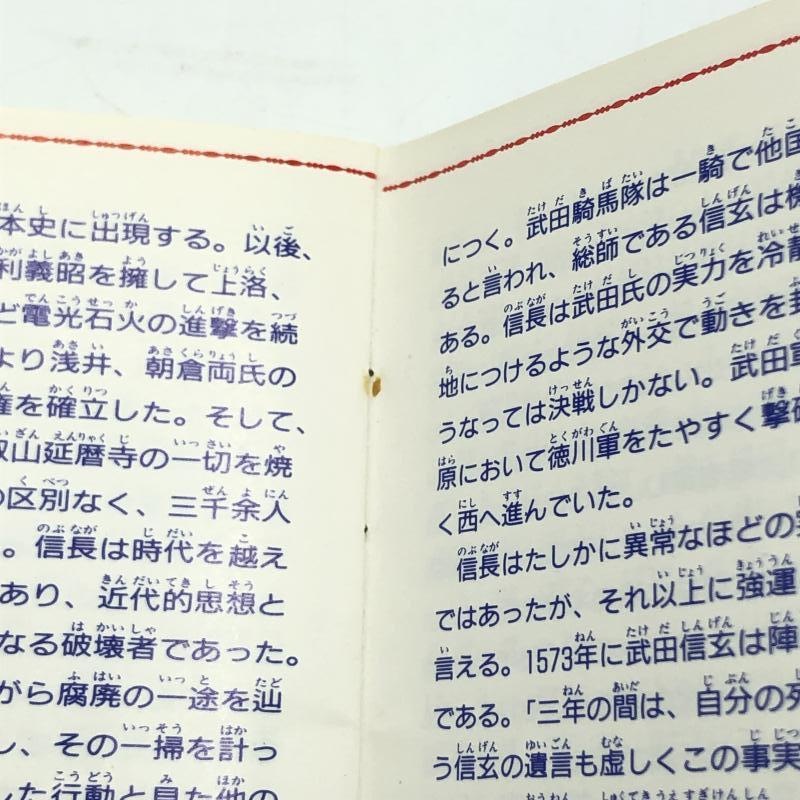 本史に出現する。以後、
利義昭を擁して上洛、
ど電光石火の進撃を続
より浅井、朝倉両氏の
権を確立した。そして、
山延暦寺の一切を焼
の区別なく、三千余人
。信長は時代を越え
あり、近代的思想と
なる破壊者であった。
がら腐廃の一途を辿
し、その一掃を計っ
した行動と見た他の
につく。武田騎馬隊は一騎で他国
ると言われ、総師である信玄は機
ある。信長は武田氏の実力を冷静
地につけるような外交で動きを封
うなっては決戦しかない。武田軍
原において徳川軍をたやすく撃破
く西へ進んでいた。
信長はたしかに異常なほどの
ではあったが、それ以上に強運
言える。1573年に武田信玄は陣
である。「三年の間は、自分の死
う信玄の遺言も虚しくこの事実